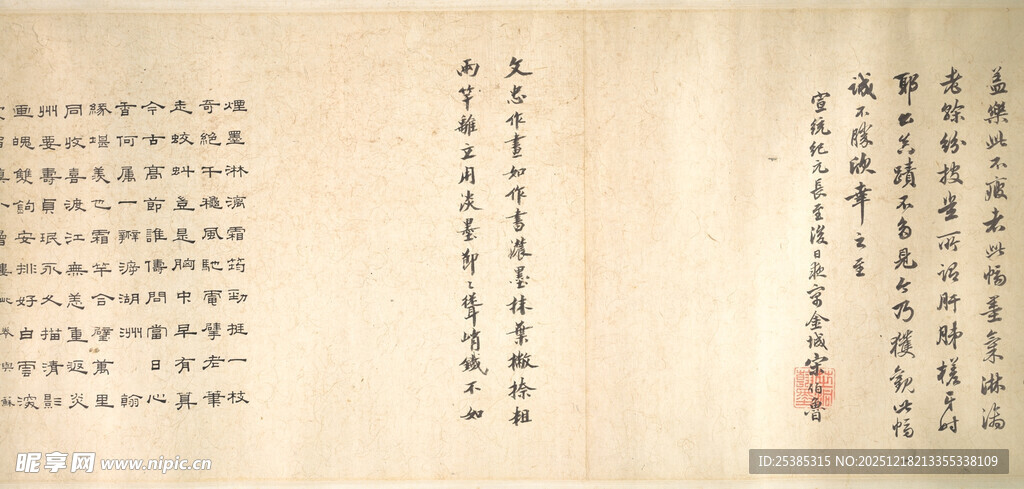 蓋樂此不疲者此幅墨氣淋漓
老餘紛披豈所謂肝肺槎牙時
耶公真蹟不多見今乃獲觀此幅
誠不勝欣幸之至
宣統紀元長至後日寓金城宋伯魯
文忠作畫如作書濃墨抹葉撇捺粗
兩竿離立用淡墨節々聳峭鐵不如
煙墨淋漓霜筠勁挺一枝
奇絕千穩風馳電擘老筆
走蛟虯豈是胸中早有真
今古高節誰儔問當日心
香何屬一瓣湖洲翰
緣堪羨也霜竿合璧萬里
同收喜渡江無恙重返炎
州要壽貞珉永久描清影
畫魄雙鉤安排好白雲深
昵享网 www.nipic.cn
ID:25385315 NO:20251218213355338109